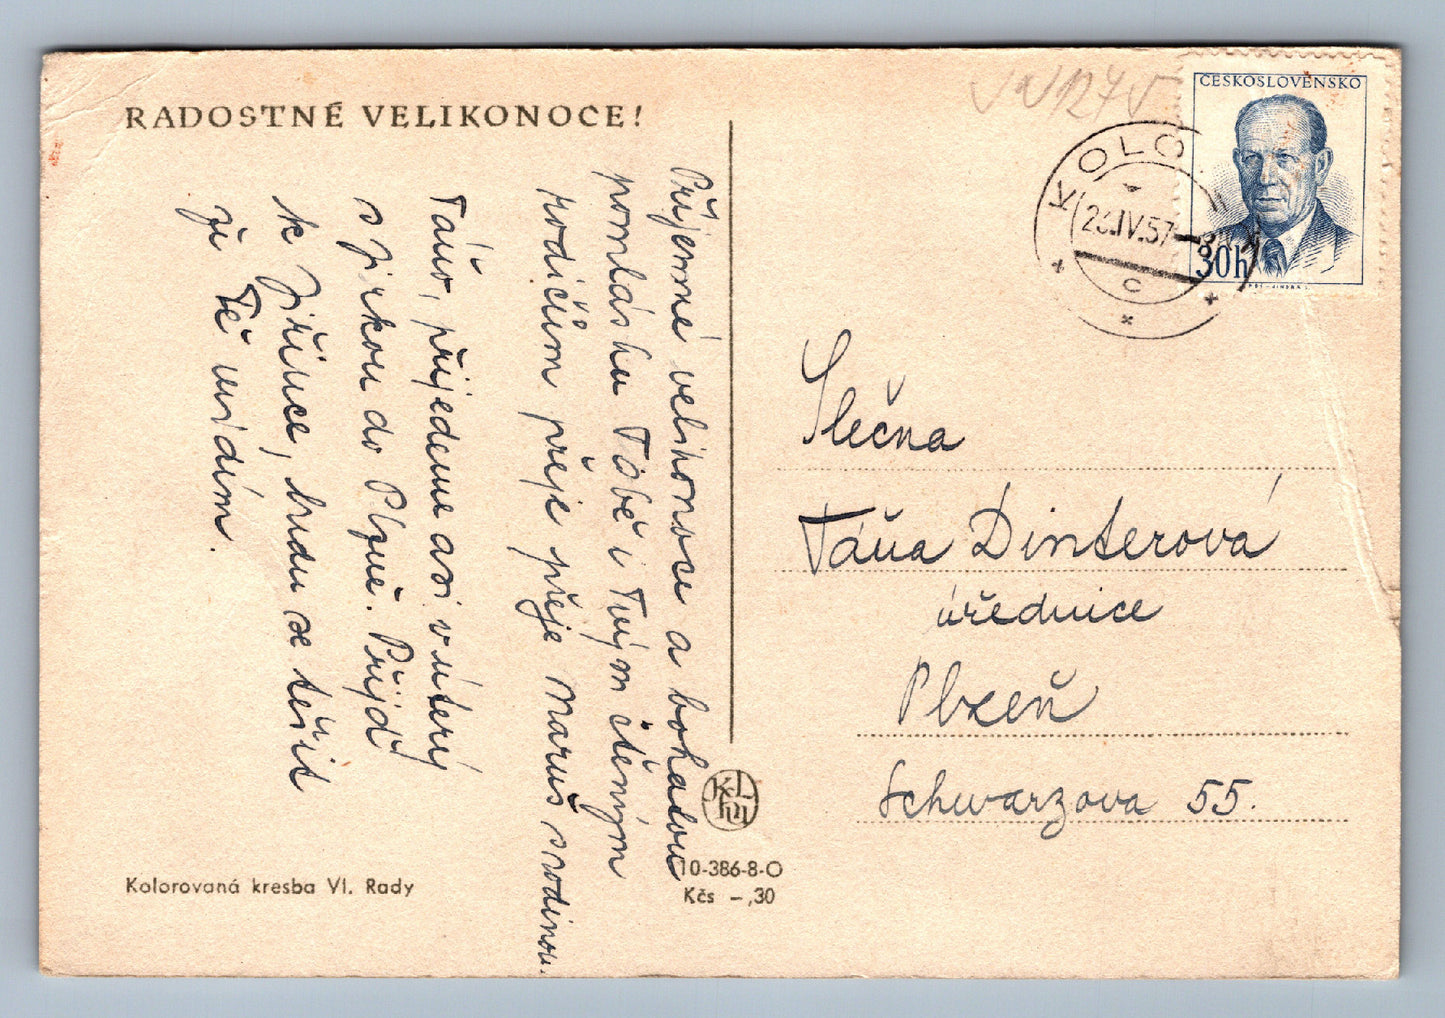 RADOSTNÉ VELIKONOCE!
Příjemné velikonoce a bohatou
pomlásku Tobě i Tvým ctěným
rodičům přeje přeje Maruš s rodinou.
Táňo, přijedeme asi v úterý
s Jirkou do Plzně. Přijď
k Jiřince, budu se těšit
že Tě uvidím.
Kolorovaná kresba Vl. Rady
KLHU
10-386-8-O
Kčs –,30
ČESKOSLOVENSKO
30h
KOLO
26.IV.57
c
Slečna
Táňa Dinterová
úřednice
Plzeň
Schwarzova 55.